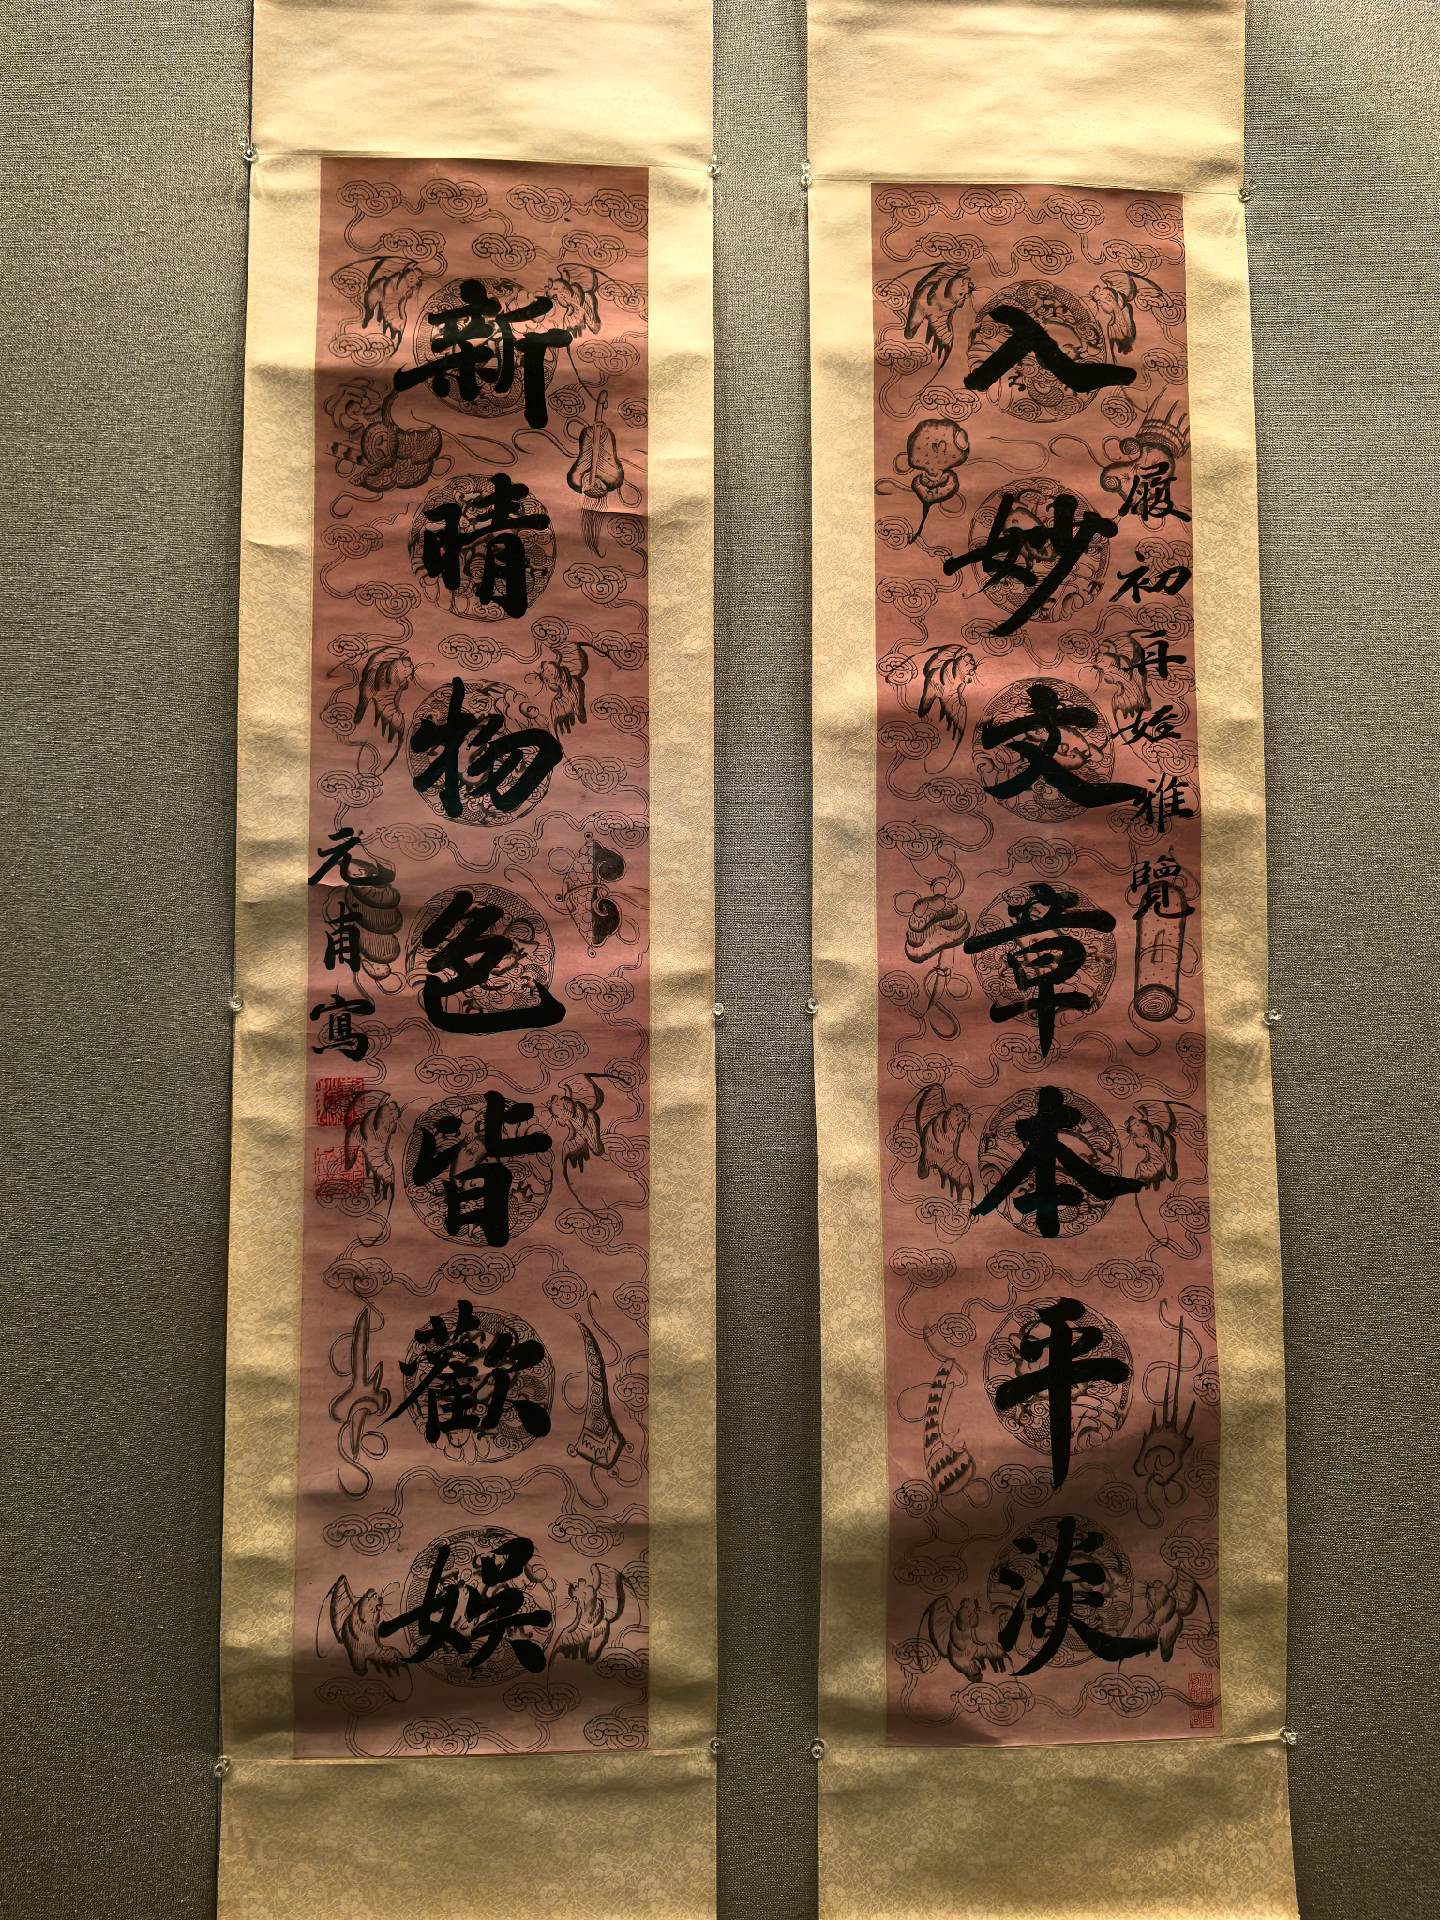 履初再姪雅覽
入妙文章本平淡
新晴物色皆歡娛
元甫寫